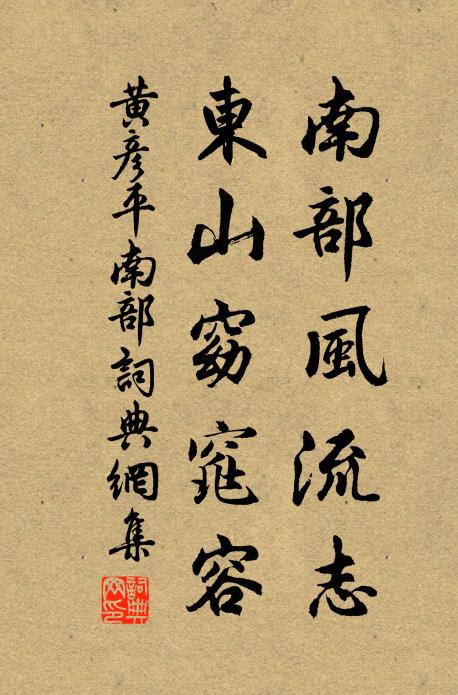 南部風流志
東山窈窕容
黃彥平南部詞典網集
詞典網印